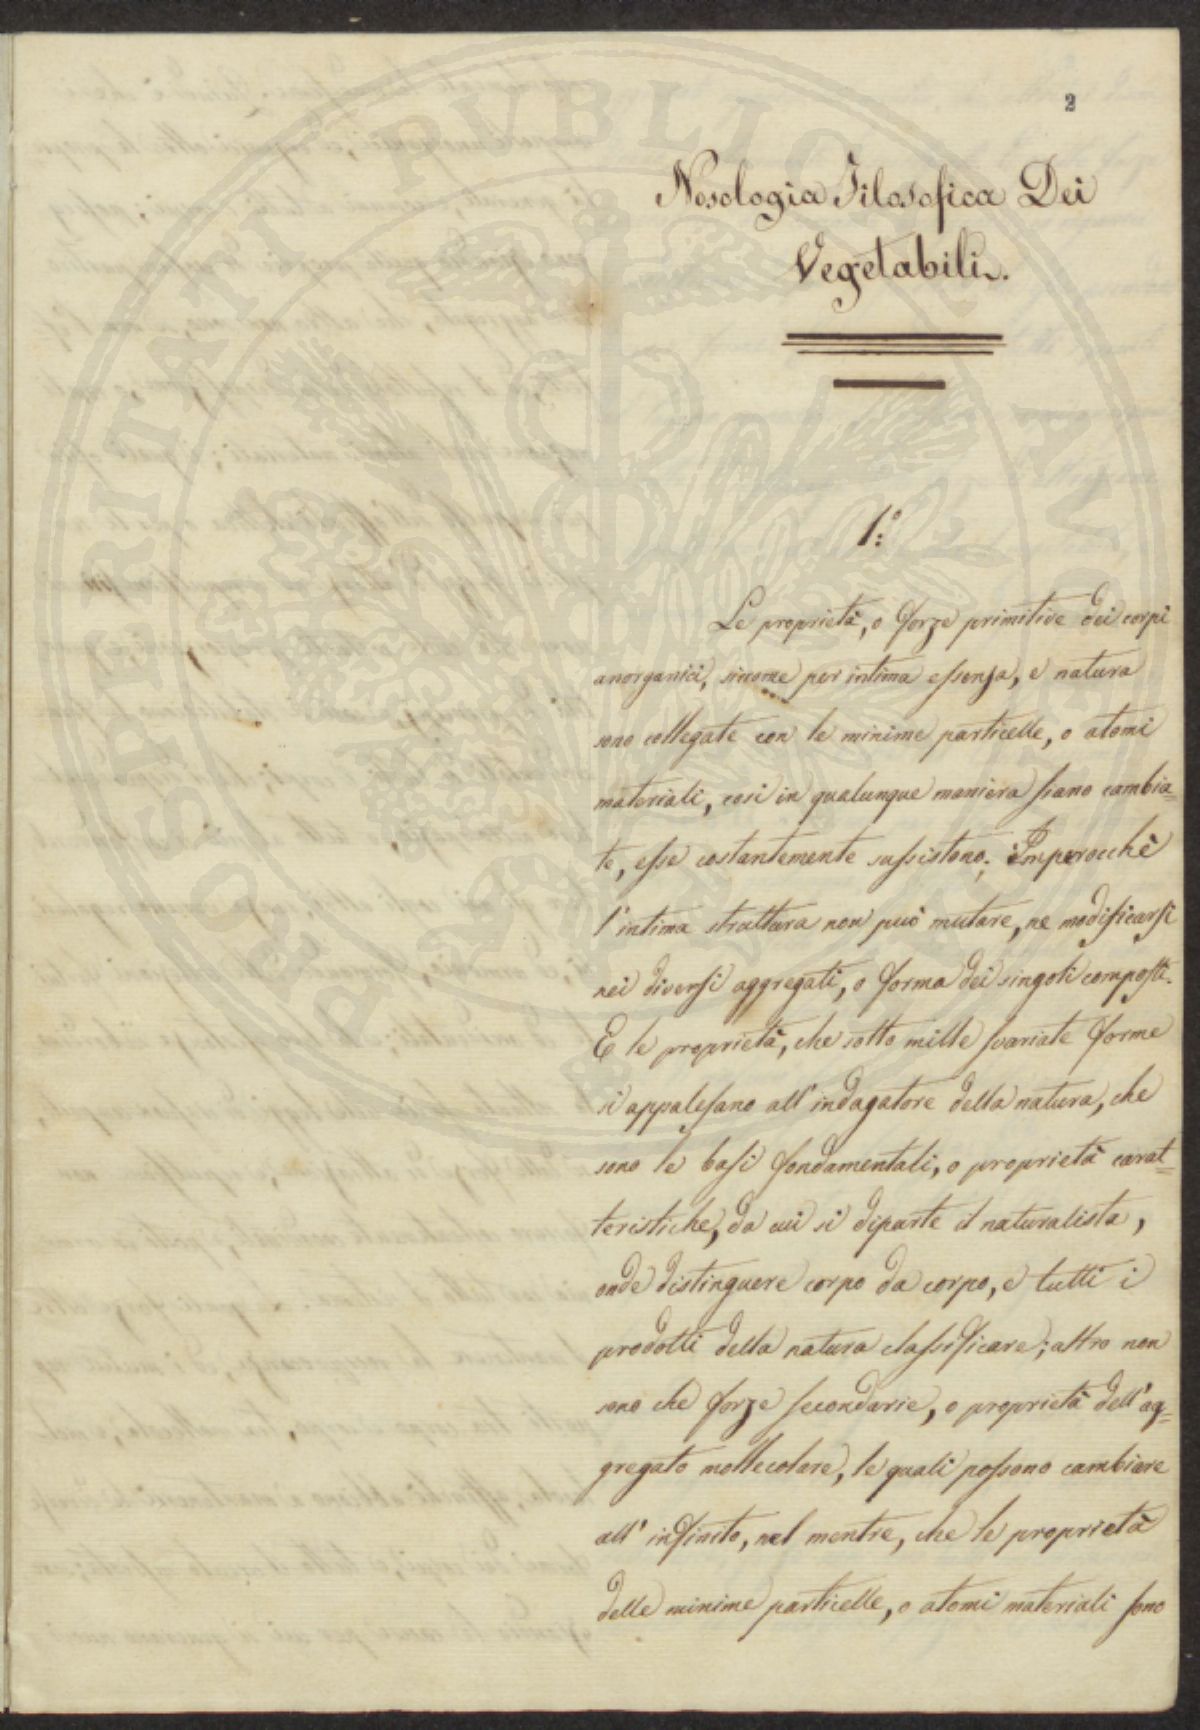 2
Nosologia Filosofica Dei
Vegetabili.
1.°
Le proprietà, o forze primitive dei corpi
anorganici, siccome per intima essenza, e natura
sono collegate con le minime particelle, o atomi
materiali, così in qualunque maniera siano cambia=
te, esse costantemente sussistono; Imperocchè
l'intima struttura non può mutare, ne modificarsi
nei diversi aggregati, o forma dei singoli composti.
E le proprietà, che sotto mille svariate forme
si appalesano all'indagatore della natura, che
sono le basi fondamentali, o proprietà carat=
teristiche, da cui si diparte il naturalista,
onde distinguere corpo da corpo, e tutti i
prodotti della natura classificare; altro non
sono che forze secondarie, o proprietà dell'ag=
gregato mollecolare, le quali possono cambiare
all'infinito, nel mentre, che le proprietà
delle minime particelle, o atomi materiali sono